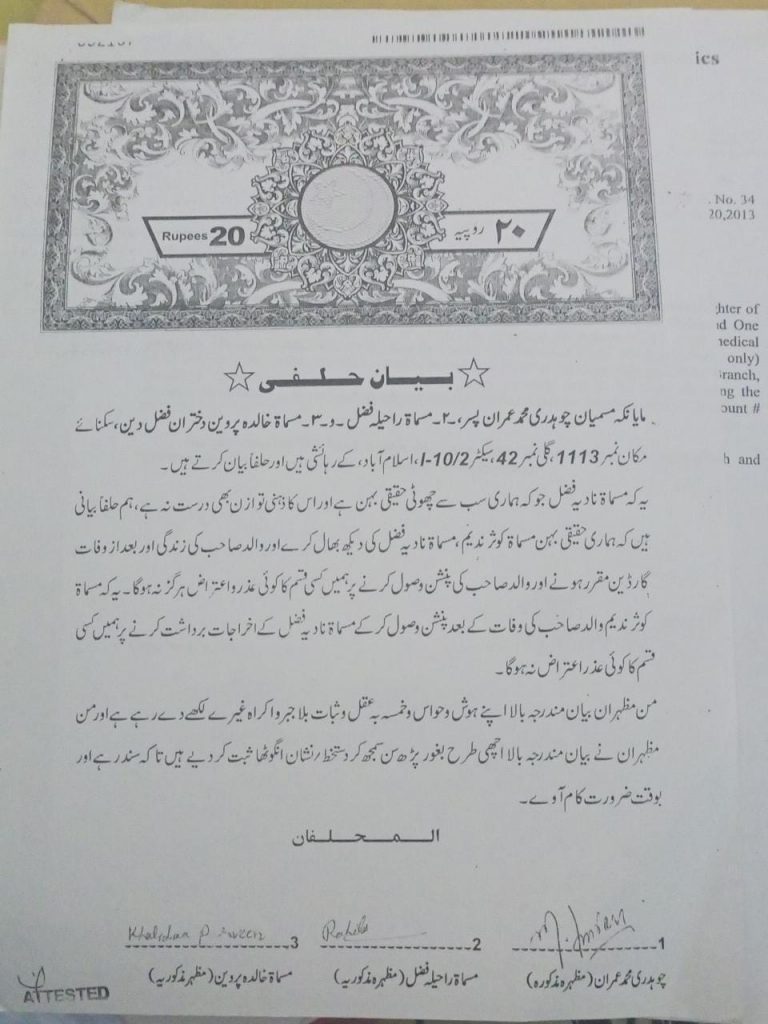 ics
No. 34
20,2013
Rupees 20
۲۰ روپیہ
hter of
d One
nedical
only)
Branch,
ng the
ount #
h and
بیان حلفی
مایانکہ مسمیان چوہدری محمد عمران پسر، ۲۔ مسماۃ راحیلہ فضل ۔و۔ ۳۔ مسماۃ خالدہ پروین دختران فضل دین، سکنائے
مکان نمبر 1113، گلی نمبر 42، سیکٹر I-10/2، اسلام آباد، کے رہائشی ہیں اور حلفاً بیان کرتے ہیں۔
یہ کہ مسماۃ نادیہ فضل جو کہ ہماری سب سے چھوٹی حقیقی بہن ہے اور اس کا ذہنی توازن بھی درست نہ ہے، ہم حلفاً بیانی
ہیں کہ ہماری حقیقی بہن مسماۃ کوثر ندیم، مسماۃ نادیہ فضل کی دیکھ بھال کرے اور والد صاحب کی زندگی اور بعد از وفات
گارڈین مقرر ہونے اور والد صاحب کی پنشن وصول کرنے پر ہمیں کسی قسم کا کوئی عذر و اعتراض ہرگز نہ ہوگا۔ یہ کہ مسماۃ
کوثر ندیم والد صاحب کی وفات کے بعد پنشن وصول کر کے مسماۃ نادیہ فضل کے اخراجات برداشت کرنے پر ہمیں کسی
قسم کا کوئی عذر اعتراض نہ ہوگا۔
من مظہران بیان مندرجہ بالا اپنے ہوش و حواس و خمسہ بہ عقل و ثبات بلا جبر و اکراہ غیرے لکھے دے رہے ہے اور من
مظہران نے بیان مندرجہ بالا اچھی طرح بغور پڑھ سن سمجھ کر دستخط / نشان انگوٹھا ثبت کر دیے ہیں تاکہ سند رہے اور
بوقت ضرورت کام آوے۔
المحلفان
1 M. Imran
2 Rahila
3 Khalidaa Parveen
چوہدری محمد عمران (مظہرہ مذکورہ)
مسماۃ راحیلہ فضل (مظہرہ مذکوریہ)
مسماۃ خالدہ پروین (مظہرہ مذکوریہ)
ATTESTED